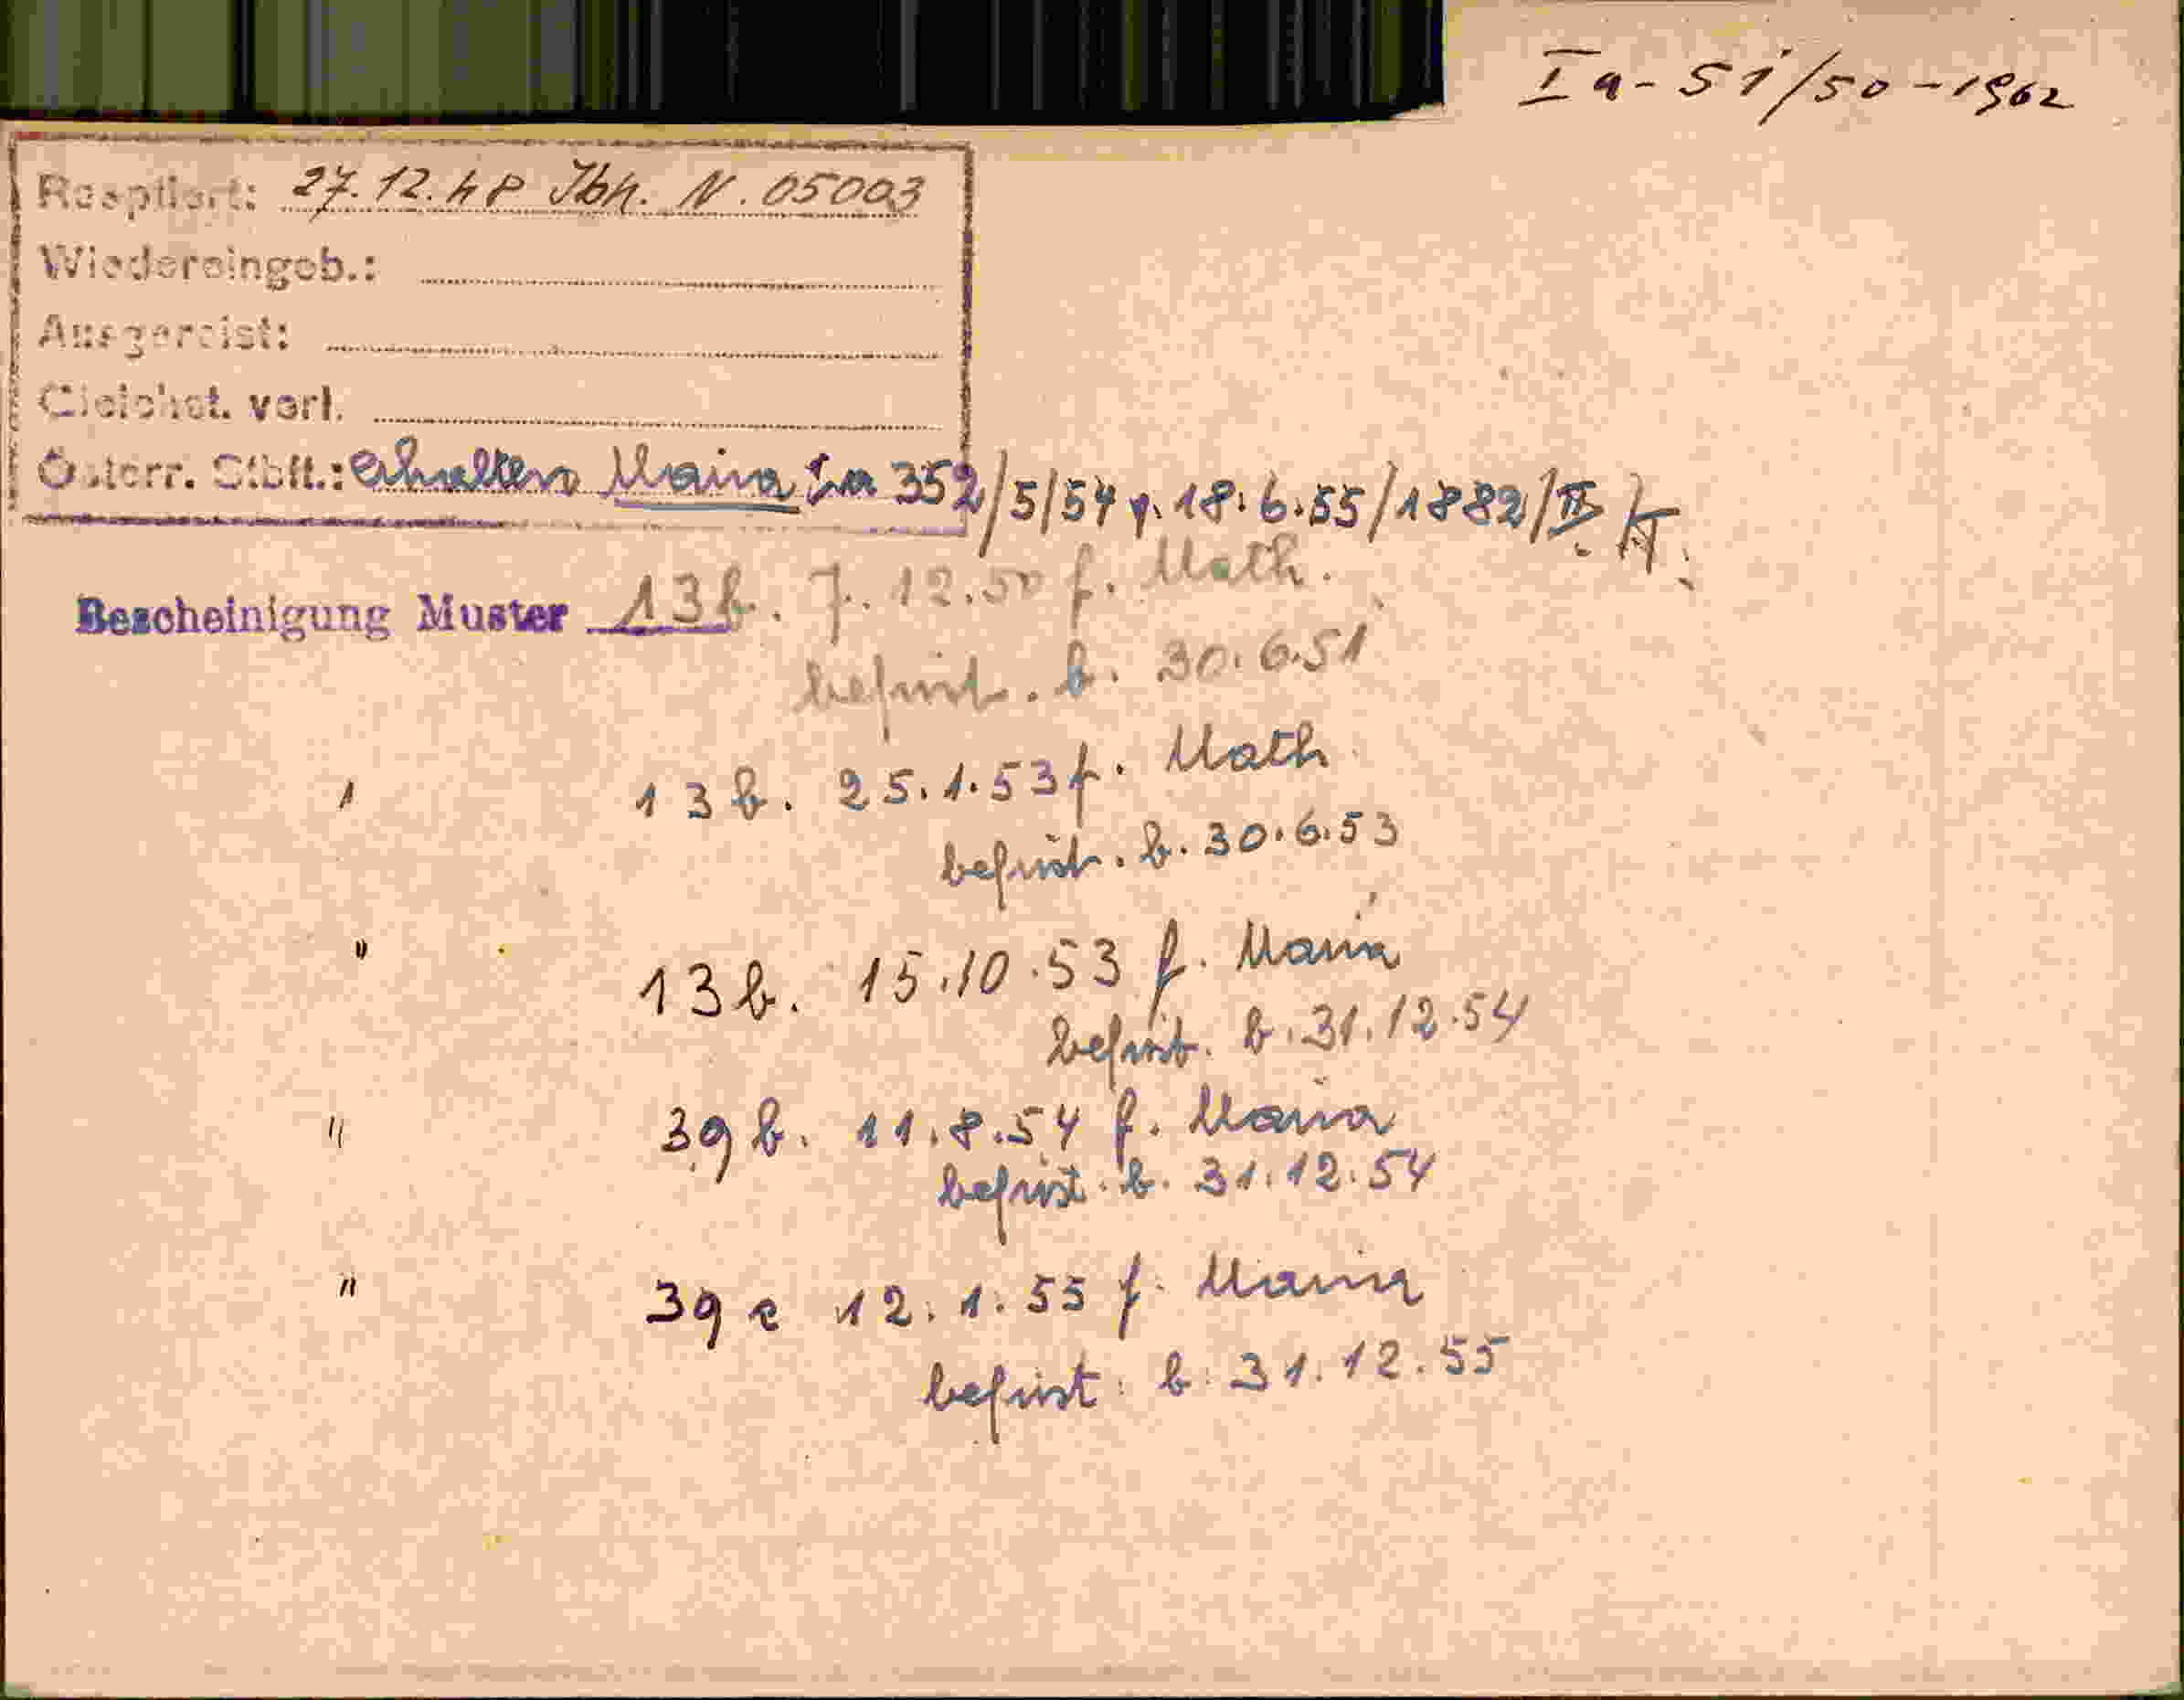 Ia - 51/50 - 1962
Reoptiert: 27.12.48 Ibk. N. 05003
Wiedereingeb.:
Ausgereist:
Gleichst. verl.
Österr. Stbft.: erhalten Maria Ia 352/5/54 v. 18.6.55/1882/II
Bescheinigung Muster 13 b. 7.12.50 f. Math.
befrist. b. 30.6.51
" 13 b. 25.1.53 f. Math
befrist. b. 30.6.53
" 13 b. 15.10.53 f. Maria
befrist. b. 31.12.54
" 39 b. 11.8.54 f. Maria
befrist. b. 31.12.54
" 39 c 12.1.55 f. Maria
befrist. b. 31.12.55